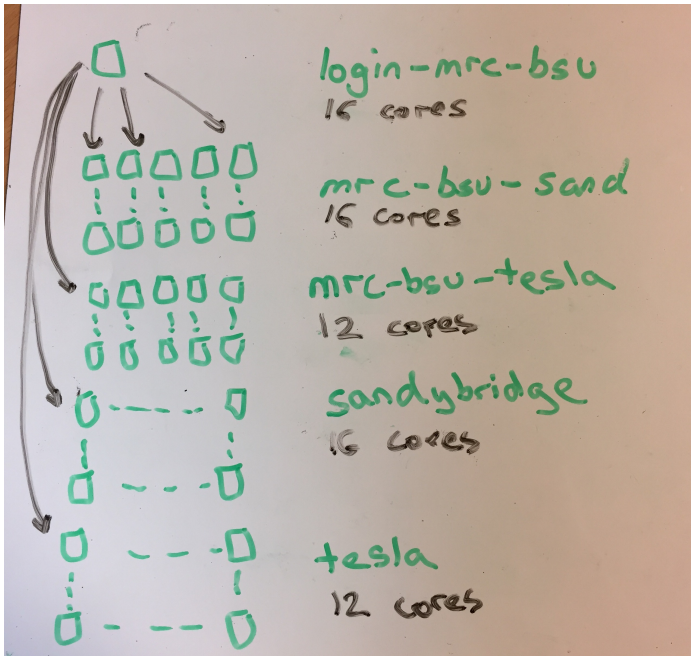 login-mrc-bsu
16 cores
mrc-bsu-sand
16 cores
mrc-bsu-tesla
12 cores
sandybridge
16 cores
tesla
12 cores